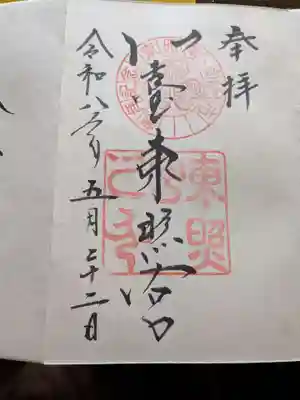 奉拝
仙臺東照宮
令和六年五月二十二日
東照